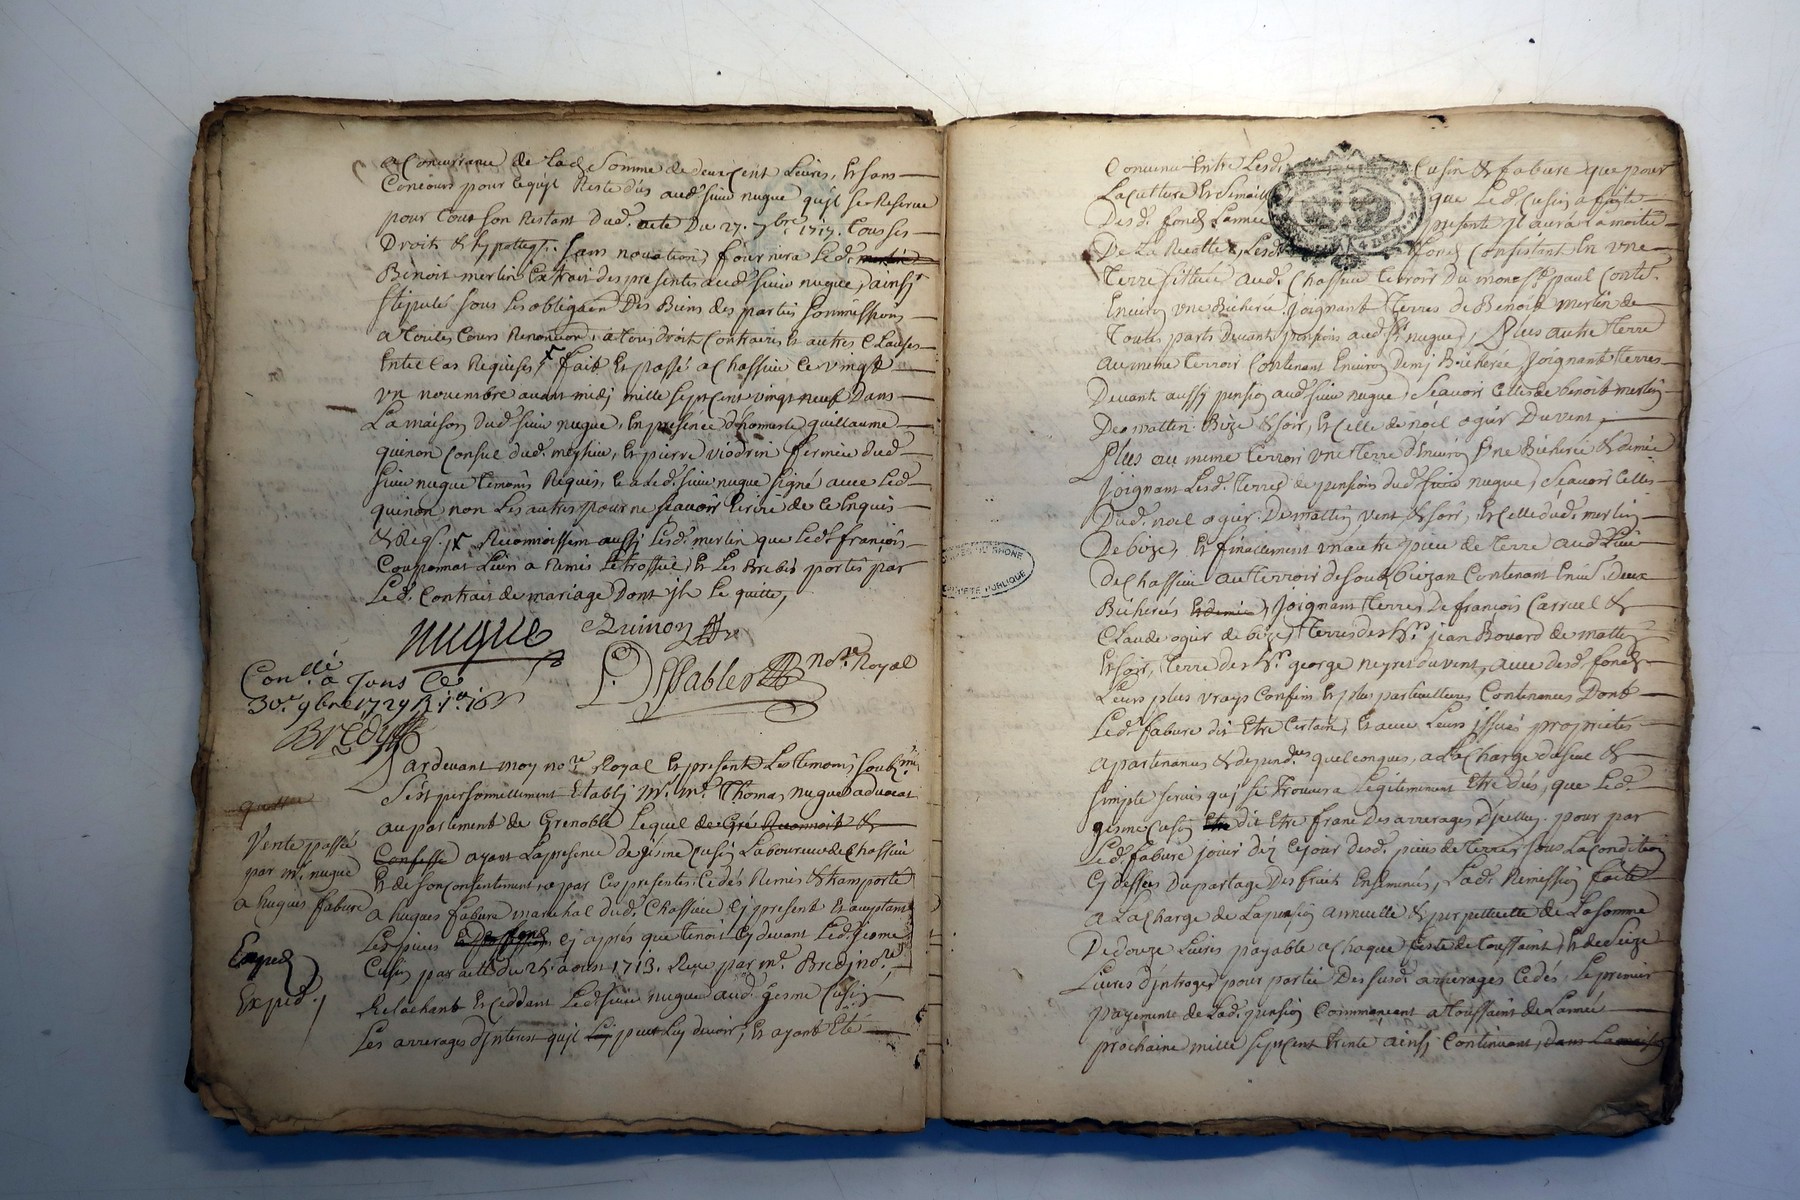 a Concurrance de lad. somme de deux cent livres, et sans
Concours pour ce qu'il Reste dûs aud. sieur nugue qu'il se Reserve
pour tout son Restant dud. acte du 27. 7bre 1717. tous ses
Droits & hypoteq. sans novation, fournira led.
Benoit merlin Extrait des presentes aud. sieur nugue, ainsy
stipulé sous les obligaon Des Biens des parties soumissions
a toutes Cours Renonçaon, a tous droits Contraires et autres Clauses
En tel cas Requises x fait et passé a Chassieu ce vingt
un novembre avant midi mille sept cent vingt neuf Dans
La maison dud. sieur nugue, En presence d'honneste guillaume
quinon Consul dud. meysieu, et pierre viodrin fermier dud.
sieur nugue temoins Requis, et a led. sieur nugue signé avec led.
quinon non Les autres pour ne sçavoir Ecrire de ce Enquis
& Req. x Reconnoissent aussi lesd. merlin que led. françois
a Remis Le trossel et les Brebis portés par
Led. Contrait de mariage Dont ils le quitte,
nugue
Quinon
Dessables nore Royal
Conllé a Jons le
30e 9bre 1729 R
Bredy
Pardevant moy nore Royal et present Les temoins soubs.
s'est personnellement Etably Mr. me. Thomas nugue advocat
au parlement de Grenoble Lequel de Gré Reconnoit &
Confesse ayant La presence de gesme Cusin Laboureur de Chassieu
et de son consentement, a par ces presentes Cedés Remis & transporté
a hugues fabure marechal dud. Chassieu icy present et acceptant
Les pieces cy après que tenoit cy devant Led. gesme
Cusin par acte du 25. aoust 1713. Receu par me. Bredy nore.
Relachant et Ceddant Led. sieur nugue aud. gesme Cusin
Les arrerages d'interest qu'il peut luy devoir, et ayant Eté
Vente passée
par me. nugue
a hugues fabure
Exped.
Exped.
Convenu Entre Lesd. Cusin & fabure que pour
La Culture et semaille que Led. Cusin a faite
Desd. fonds L'année presente Il aura La moitié
De La Recolte, Lesd. fonds Consistant En une
Terre sittuée aud. Chassieu terroir du mons st. paul Conte.
Environ une Bicherée Joignant Terres de Benoit merlin de
Toutes parts Devant pensions aud. sr. nugue, Plus autre terre
au meme terroir Contenant Environ Demi Bicherée, Joignant terres
Devant aussi pension aud. sieur nugue, sçavoir Celles de benoit merlin
De mattin Bize & soir, et Celle de noel ogier Du vent,
Plus au meme terroir une terre d'Environ Une Bicherée & demie
Joignant Lesd. terres de pensions dud. sieur nugue, sçavoir Celles
Dud. noel ogier De mattin, vent & soir, et Celle dud. merlin
De bize, et finallement un autre piece de terre aud. Lieu
de Chassieu au terroir de soub bizan Contenant Envi. Deux
Bicherées et demie, Joignant terres De françois Carruel &
Claude ogier de bize, terres des hrs jean Bovard de mattin
et soir, terre des hrs george neyret du vent, avec desd. fonds
Leurs plus vrays Confins et plus particulieres Contenues Dont
Led. fabure dit Etre Certain, et avec Leurs issues proprietés
apartenances & depend.ces quelconques, a La Charge du seul &
simple servis qui se trouvera Legitimement Etre dûs, que Led.
gesme Cusin Etre dit Etre franc Des arrerages D'icelluy. pour par
Led. fabure jouir dez ce jour desd. pieces de terres sous La Condition
Cy dessus Du partage Des fruits Ensemencés, Lad. Remission faite
a La Charge de La pension annuelle & perpetuelle de La somme
De douze Livres payable a Chaque feste de toussaint, et de seize
Livres d'Introges pour partie Des susd. arrerages Cedés, Le premier
payement de Lad. pension Commençant a toussaint de L'année
prochaine mille sept cent trente ainsi Continuant, dans La maison